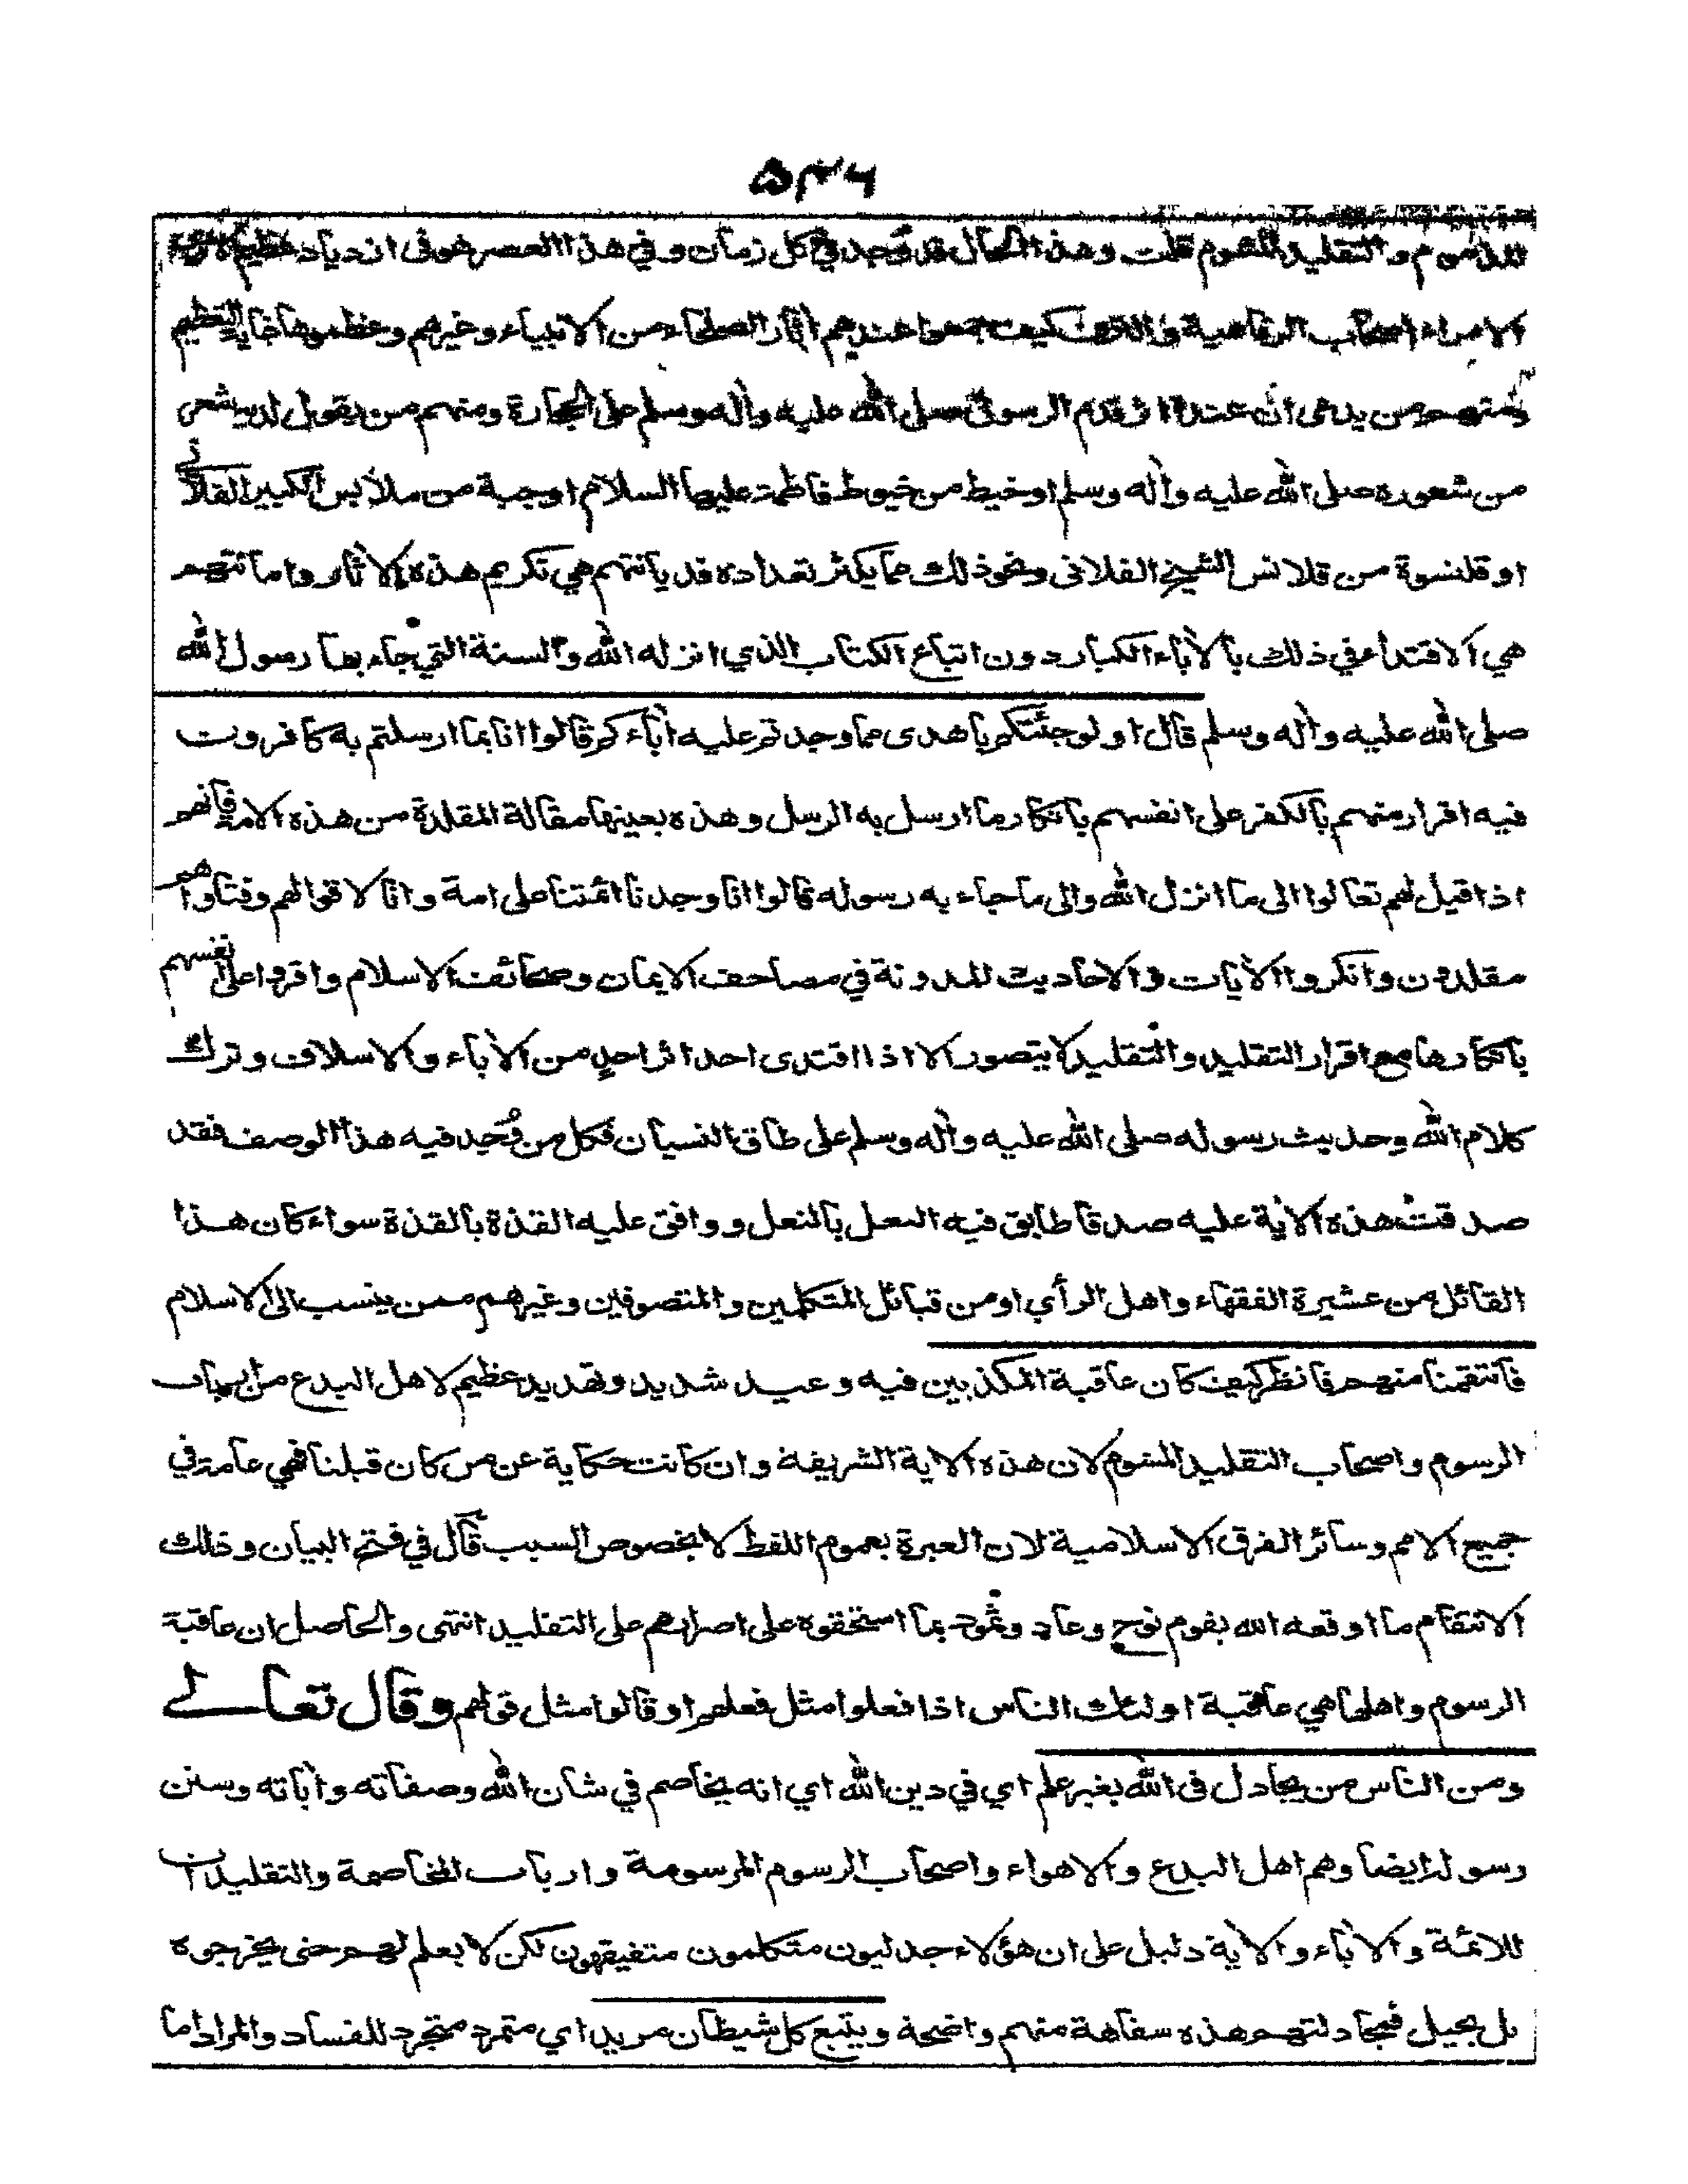 ۵۴۶
المذموم والتقليد المشوم قلت وهذا الحال قد وجد في كل زمان وفي هذا العصر هو فى ازدياد عظيم
الامراء اصحاب الرفاهية كيف جمعوا عندهم اٰثار الصلحاء من الانبياء وغيرهم وعظموها غاية التعظيم
ومنهم من يدعى ان عنده اثر قدم الرسول صلى الله عليه واٰله وسلم على الحجارة ومنهم من يقول لديه شعر
من شعوره صلى الله عليه واٰله وسلم او خيط من خيوط فاطمة عليها السلام او جبة من ملابس الكبير الفلاني
او قلنسوة من قلانس الشيخ الفلانى ونحو ذلك مما يكثر تعداده فديانتهم هي تكريم هذه الاٰثار وامانتهم
هي الاقتداء في ذلك بالاٰباء الكبار دون اتباع الكتاب الذي انزله الله والسنة التي جاء بها رسول الله
صلى الله عليه واٰله وسلم قال اولو جئتكم باهدى مما وجدتم عليه اٰباءكم قالوا انا بما ارسلتم به كافرون
فيه اقرار منهم بالكفر على انفسهم بانكار ما ارسل به الرسل وهذه بعينها مقالة المقلدة من هذه الامة فانهم
اذا قيل لهم تعالوا الى ما انزل الله والى ما جاء به رسوله قالوا انا وجدنا ائمتنا على امة وانا لاقوالهم وفتاواهم
مقلدون وانكروا الاٰيات والاحاديث المدونة في مصاحف الايمان وصحائف الاسلام واقروا على انفسهم
بانكارها مع اقرار التقليد والتقليد لا يتصور الا اذا اقتدى احد اثر احد من الاٰباء والاسلاف وترك
كلام الله وحديث رسوله صلى الله عليه واٰله وسلم على طاق النسيان فكل من وُجد فيه هذا الوصف فقد
صدقت هذه الاٰية عليه صدقا طابق فيه النعل بالنعل ووافق عليه القذة بالقذة سواء كان هذا
القائل من عشيرة الفقهاء واهل الرأي او من قبائل المتكلمين والمتصوفين وغيرهم ممن ينسب الى الاسلام
فانتقمنا منهم فانظر كيف كان عاقبة المكذبين فيه وعيد شديد وتهديد عظيم لاهل البدع من ارباب
الرسوم واصحاب التقليد المشوم لان هذه الاية الشريفة وان كانت حكاية عن من كان قبلنا فهي عامة في
جميع الامم وسائر الفرق الاسلامية لان العبرة بعموم اللفظ لا بخصوص السبب قال في فتح البيان وذلك
الانتقام ما اوقعه الله بقوم نوح وعاد وثمود بما استحقوه على اصرارهم على التقليد انتهى والحاصل ان عاقبة
الرسوم واهلها هي عاقبة اولئك الناس اذا فعلوا مثل فعلهم او قالوا مثل قولهم وقال تعالے
ومن الناس من يجادل فى الله بغير علم اي في دين الله اي انه يخاصم في شان الله وصفاته واٰياته وسنن
رسوله ايضا وهم اهل البدع والاهواء واصحاب الرسوم المرسومة وارباب المخاصمة والتقليدات
للائمة والاٰباء والاٰية دليل على ان هؤلاء جدليون متكلمون متفيقهون لكن لا بعلم لهم حتى يخرجوه
بل بجهل فمجادلتهم هذه سفاهة منهم واضحة ويتبع كل شيطان مريد اي متمرد متجرد للفساد والمراد اما